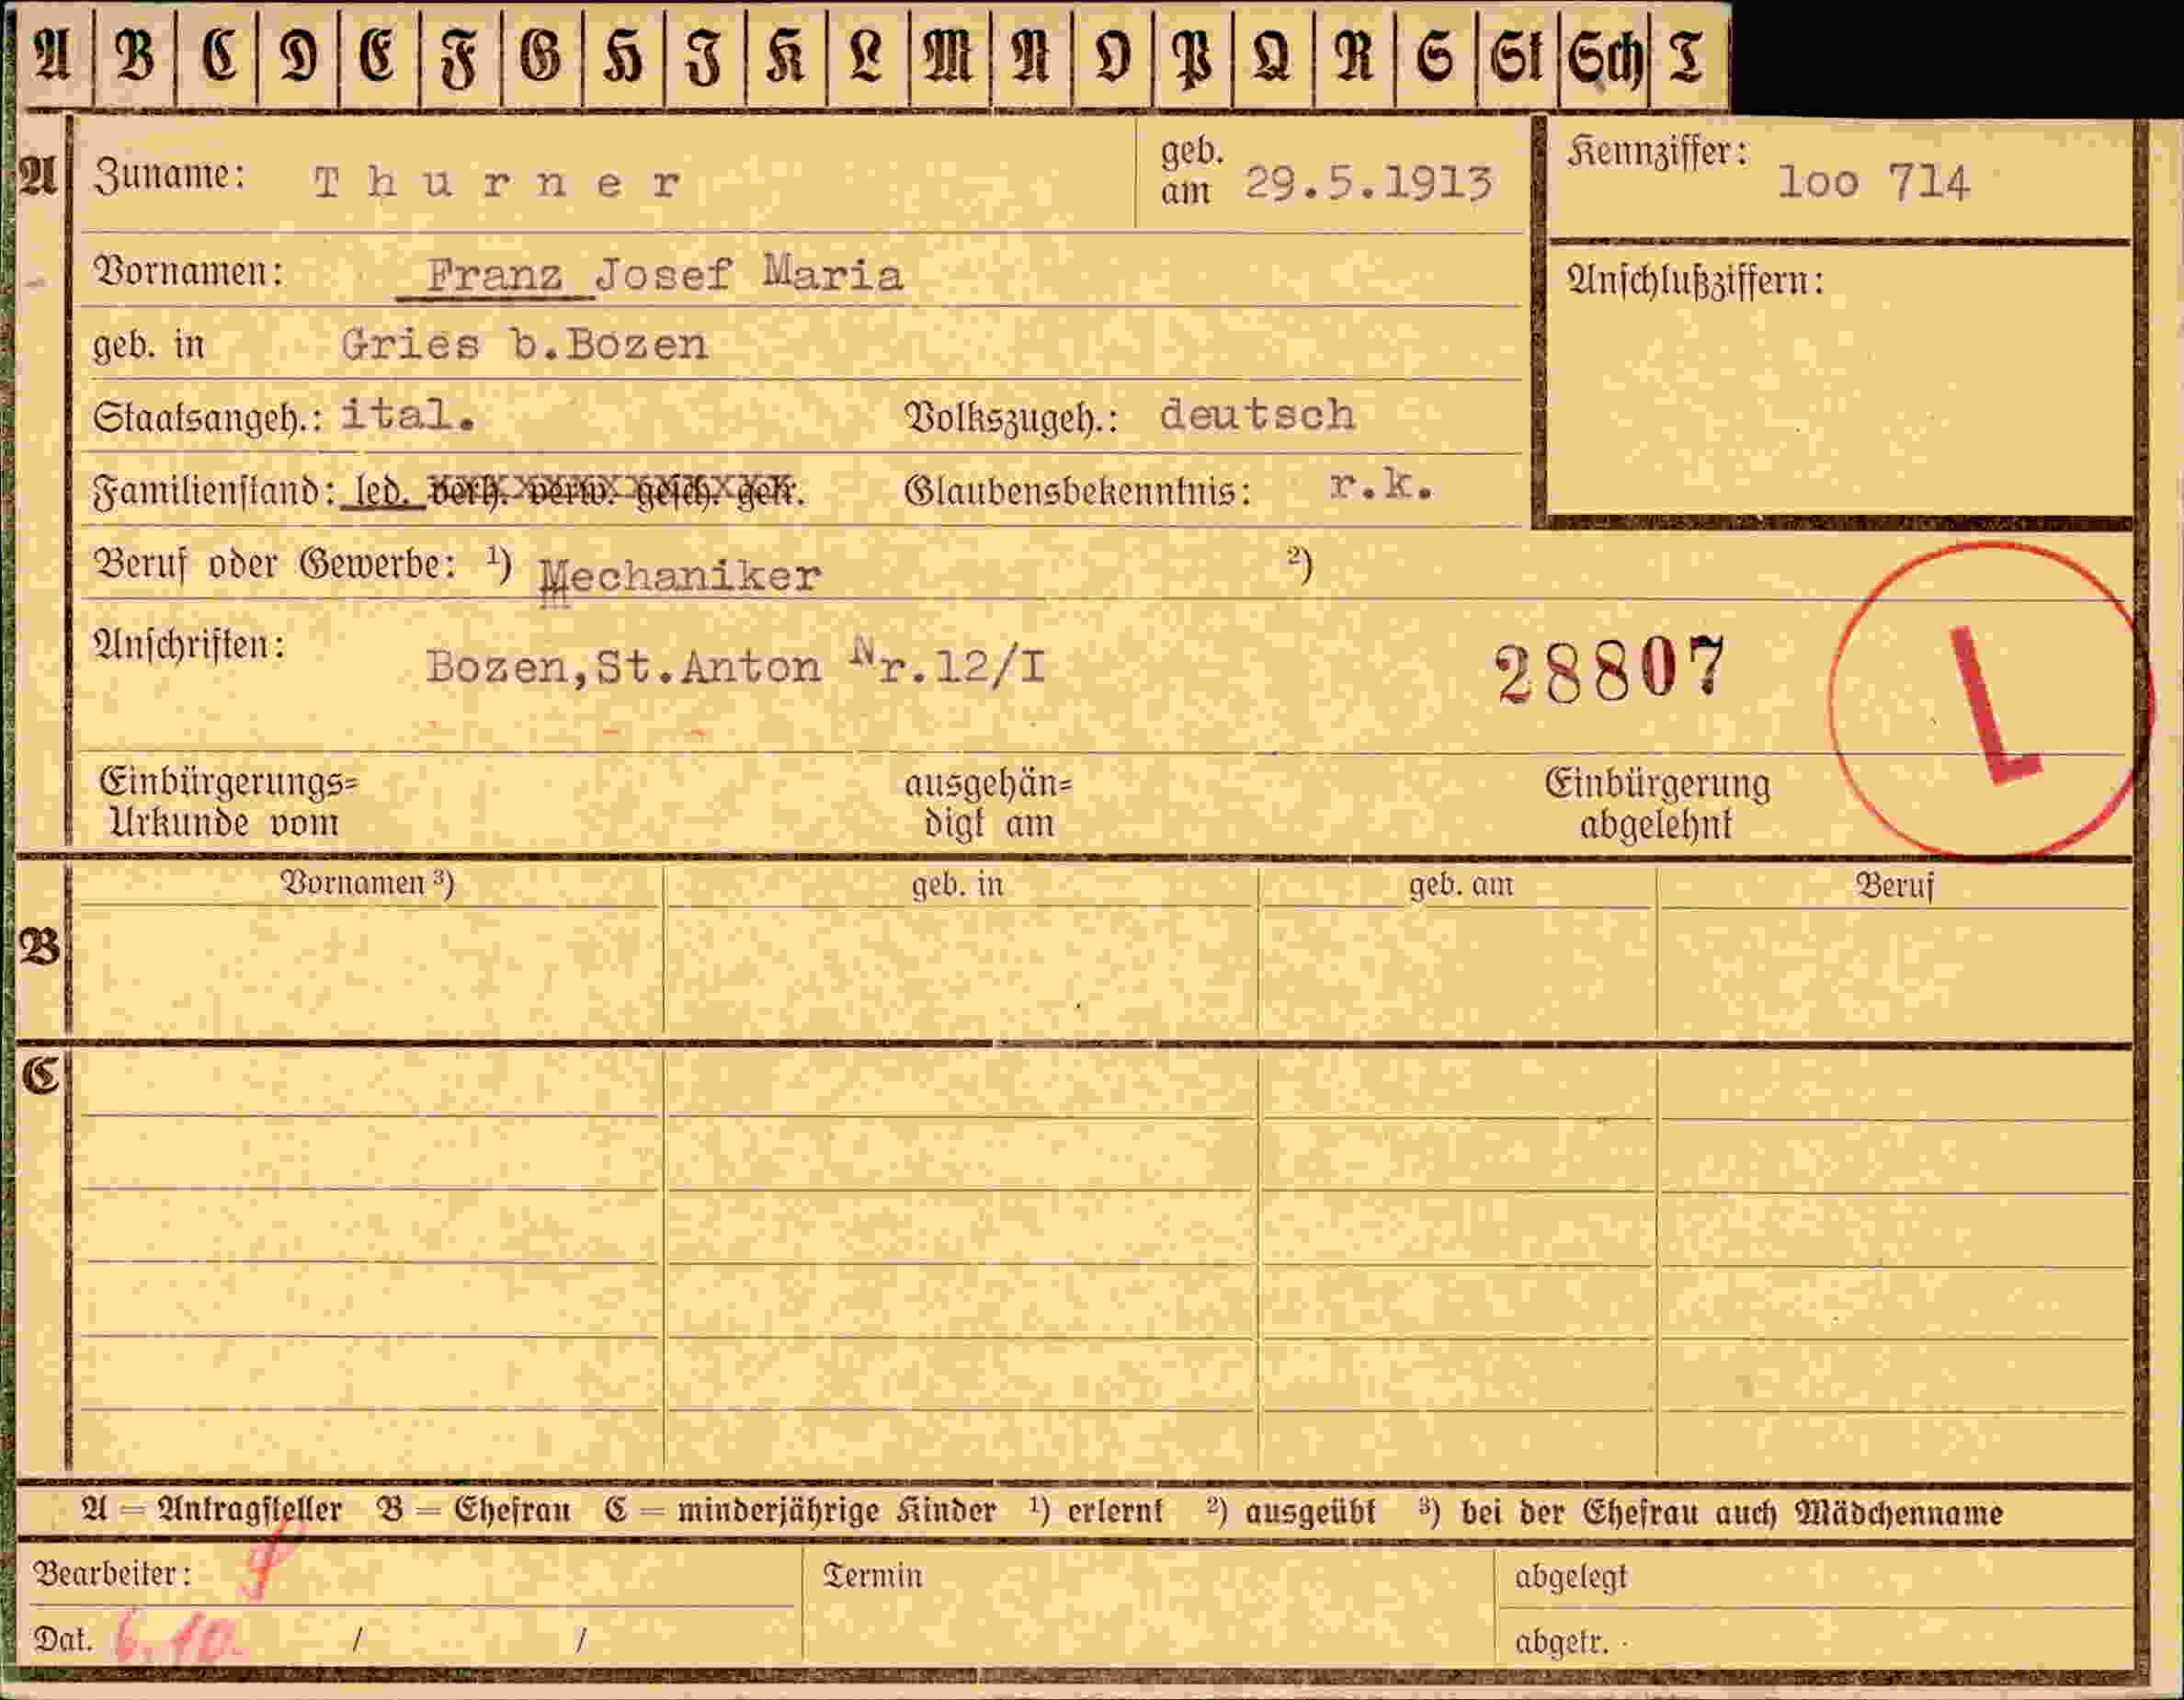 A B C D E F G H I K L M N O P Q R S St Sch T
A Zuname: Thurner geb. am 29.5.1913 Kennziffer: 1oo 714
Vornamen: Franz Josef Maria Anschlußziffern:
geb. in Gries b.Bozen
Staatsangeh.: ital. Volkszugeh.: deutsch
Familienstand: led. verh. verw. gesch. getr. Glaubensbekenntnis: r.k.
Beruf oder Gewerbe: 1) Mechaniker 2)
Anschriften: Bozen,St.Anton Nr.12/I 28807 L
Einbürgerungs=
Urkunde vom
ausgehän=
digt am
Einbürgerung
abgelehnt
Vornamen 3) geb. in geb. am Beruf
B
C
A = Antragsteller B = Ehefrau C = minderjährige Kinder 1) erlernt 2) ausgeübt 3) bei der Ehefrau auch Mädchenname
Bearbeiter: Termin abgelegt
Dat. 6.10. / / abgetr.